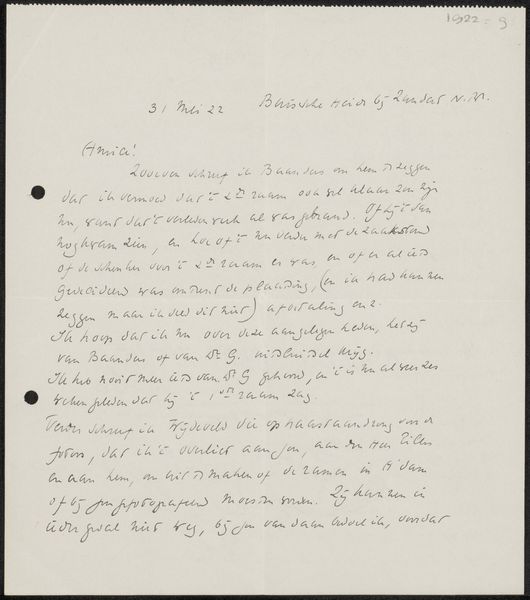 1922-9
31 Mei 22 Bersche Heide bij Zundert N.B.
Amice!
Zooeven schreef ik Baanders om hem te zeggen
dat ik vermoed dat 't 2de raam ook wel klaar zou zijn
nu, want dat 't verleden week al was gebrand. Of hij 't dan
nog kwam zien, en hoe of 't nu verder met de zaak stond
of de schenker voor 't 2de raam er was, en of er al iets
gedecideerd was omtrent de plaatsing, (en ik had kunnen
zeggen maar ik deed dit niet) afbetaling enz.
Ik hoop dat ik nu over deze aangelegenheden, hetzij
van Baanders of van Dr G. uitsluitsel krijg.
Ik heb nooit meer iets van Dr G gehoord, en 't is nu al weer zes
weken geleden dat hij 't 1ste raam zag.
Verder schreef ik Wijdeveld die op haast aandrong voor de
foto's, dat ik 't overliet aan jou, aan den Heer
en aan hem, om uit te maken of de ramen in A'dam
of bij jou gefotografeerd moesten worden. Zij kunnen in
ieder geval niet weg, bij jou vandaan bedoel ik, voordat